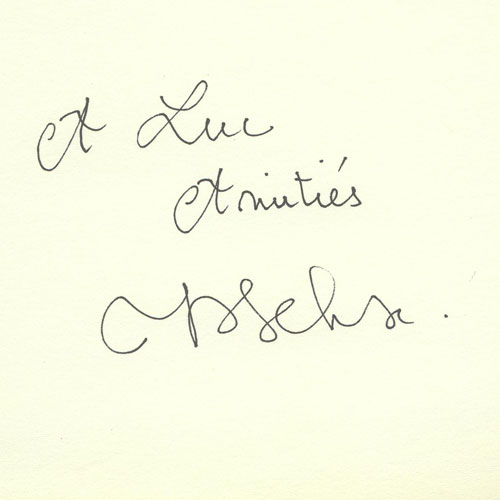 A Luc
Amitiés